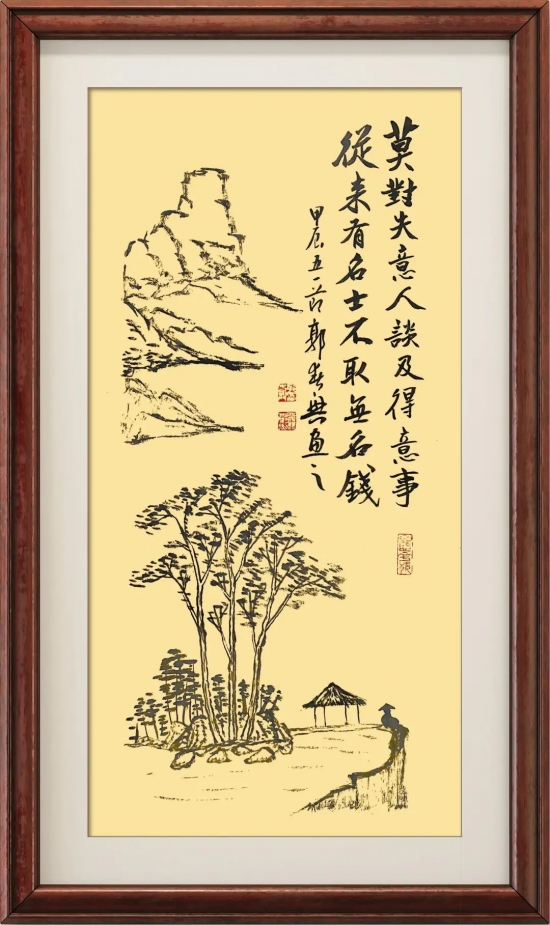 莫對失意人談及得意事
從来有名士不取無名錢
甲辰五一節郭春興画之